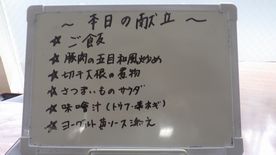 ～ 本日の献立 ～
☆ ご飯
☆ 豚肉の五目和風炒め
☆ 切干大根の煮物
☆ さつまいものサラダ
☆ 味噌汁(トウフ・長ネギ)
☆ ヨーグルト苺ソース添え